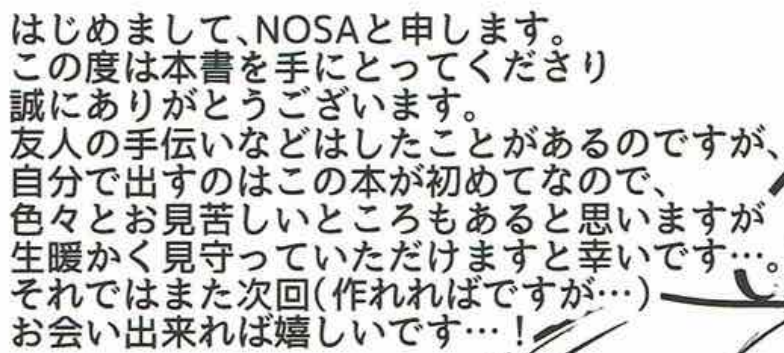 はじめまして、NOSAと申します。
この度は本書を手にとってくださり
誠にありがとうございます。
友人の手伝いなどはしたことがあるのですが、
自分で出すのはこの本が初めてなので、
色々とお見苦しいところもあると思いますが
生暖かく見守っていただけますと幸いです…。
それではまた次回(作れればですが…)
お会い出来れば嬉しいです…！